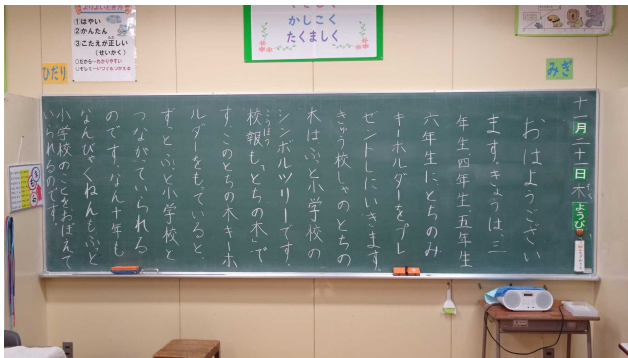 よりよいとき方
①はやい
②かんたん
③こたえが正しい
（せいかく）
かしこく
たくましく
ひだり
みぎ
十一月二十日木ようび
おはようござい
ます。きょうは、三
年生四年生五年生
六年生にとちのみ
キーホルダーをプレ
ゼントしにいきます。
きゅう校しゃのとちの
木は、ふっと小学校の
シンボルツリーです。
校報も、「とちの木」で
す。このとちの木キーホ
ルダーをもっていると、
ずっとふっと小学校と
つながっていられる
のです。なん十年も
なんびゃくねんもふっと
小学校のことをおぼえて
いられるのです。